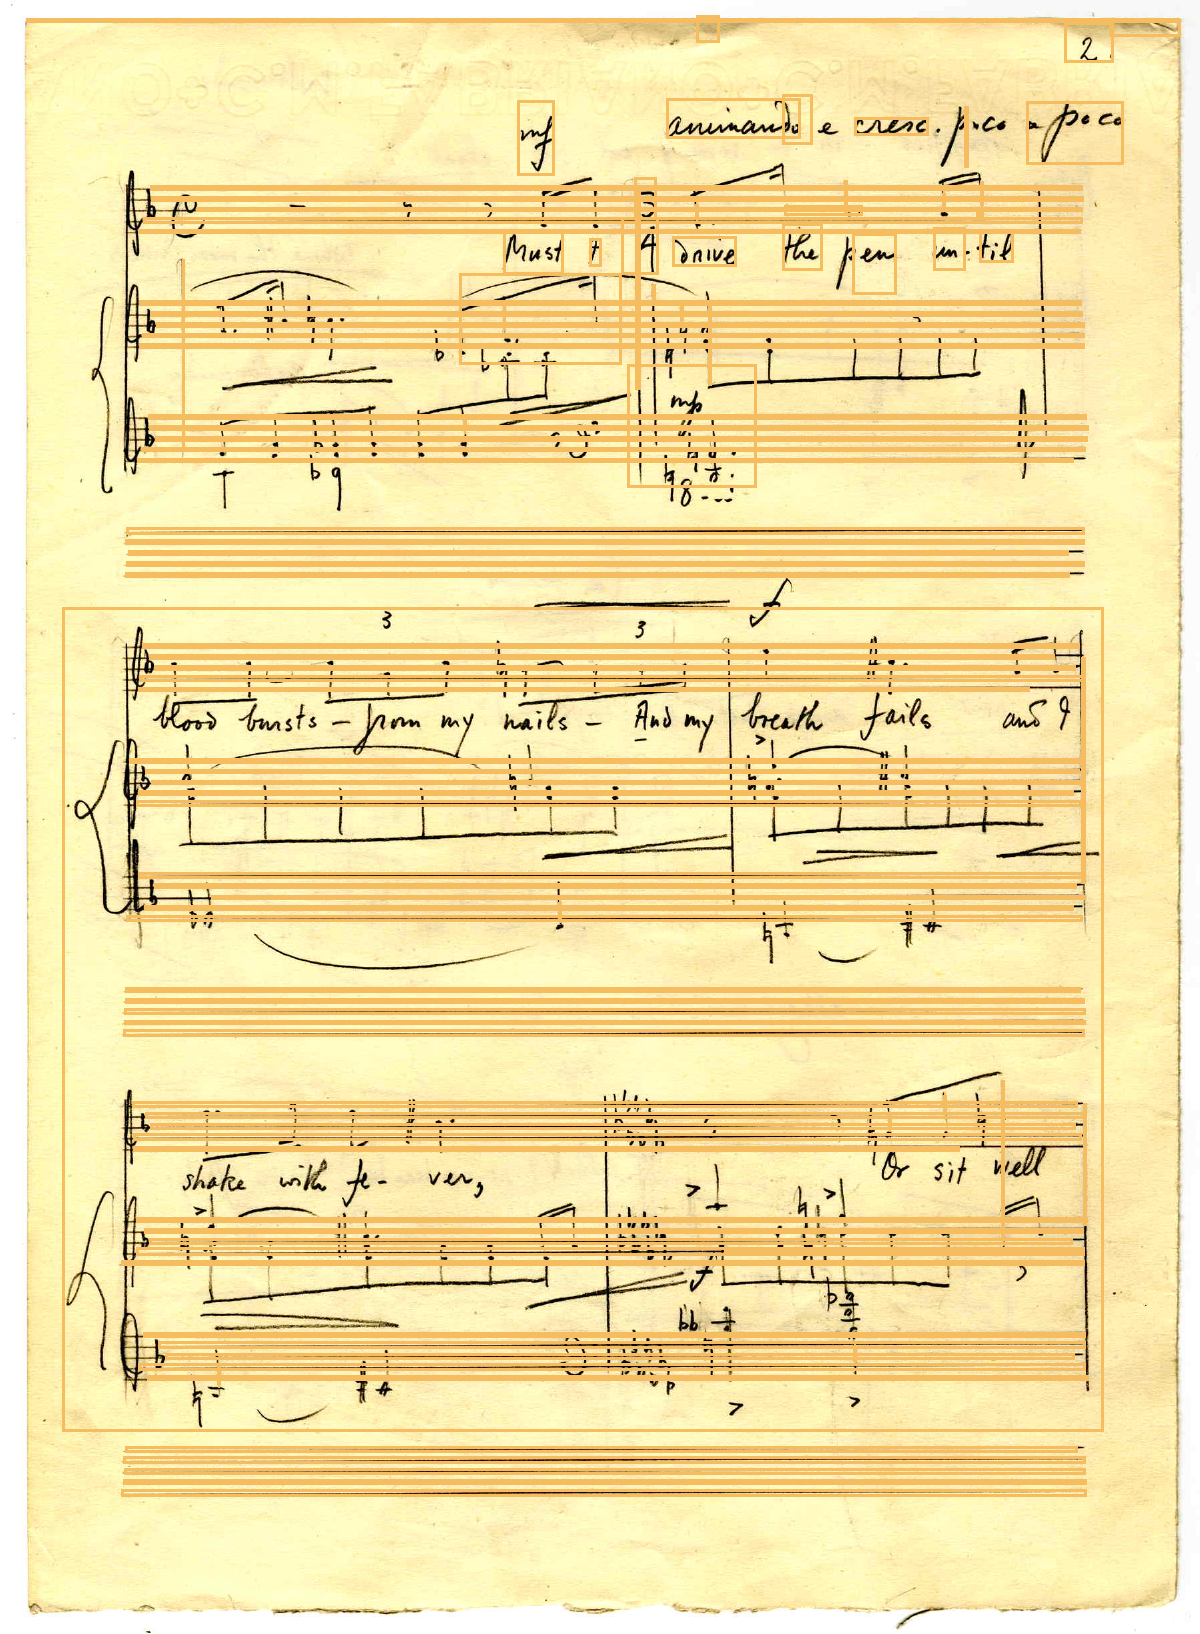 2.
mf animando e cresc. poco a poco
Must I drive the pen un-til
mp
3 3 f
blood bursts – from my nails – And my breath fails and I
shake with fe- ver, Or sit well
f